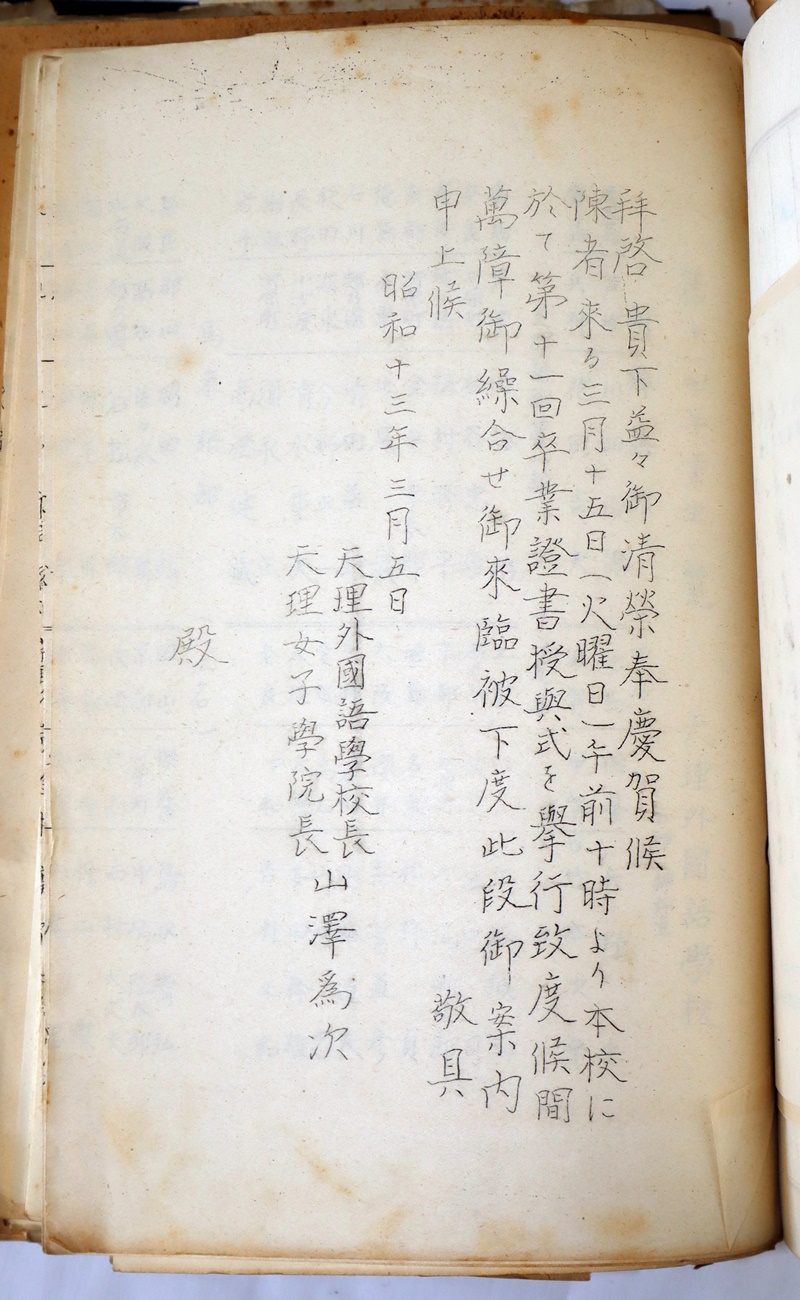 拜啓 貴下益々御清榮奉慶賀候
陳者來る三月十五日(火曜日)午前十時より本校に
於て第十一回卒業證書授與式を擧行致度候間
萬障御繰合せ御來臨被下度此段御案內
申上候 敬具
昭和十三年三月五日
天理外國語學校長
天理女子學院長
山澤爲次
殿